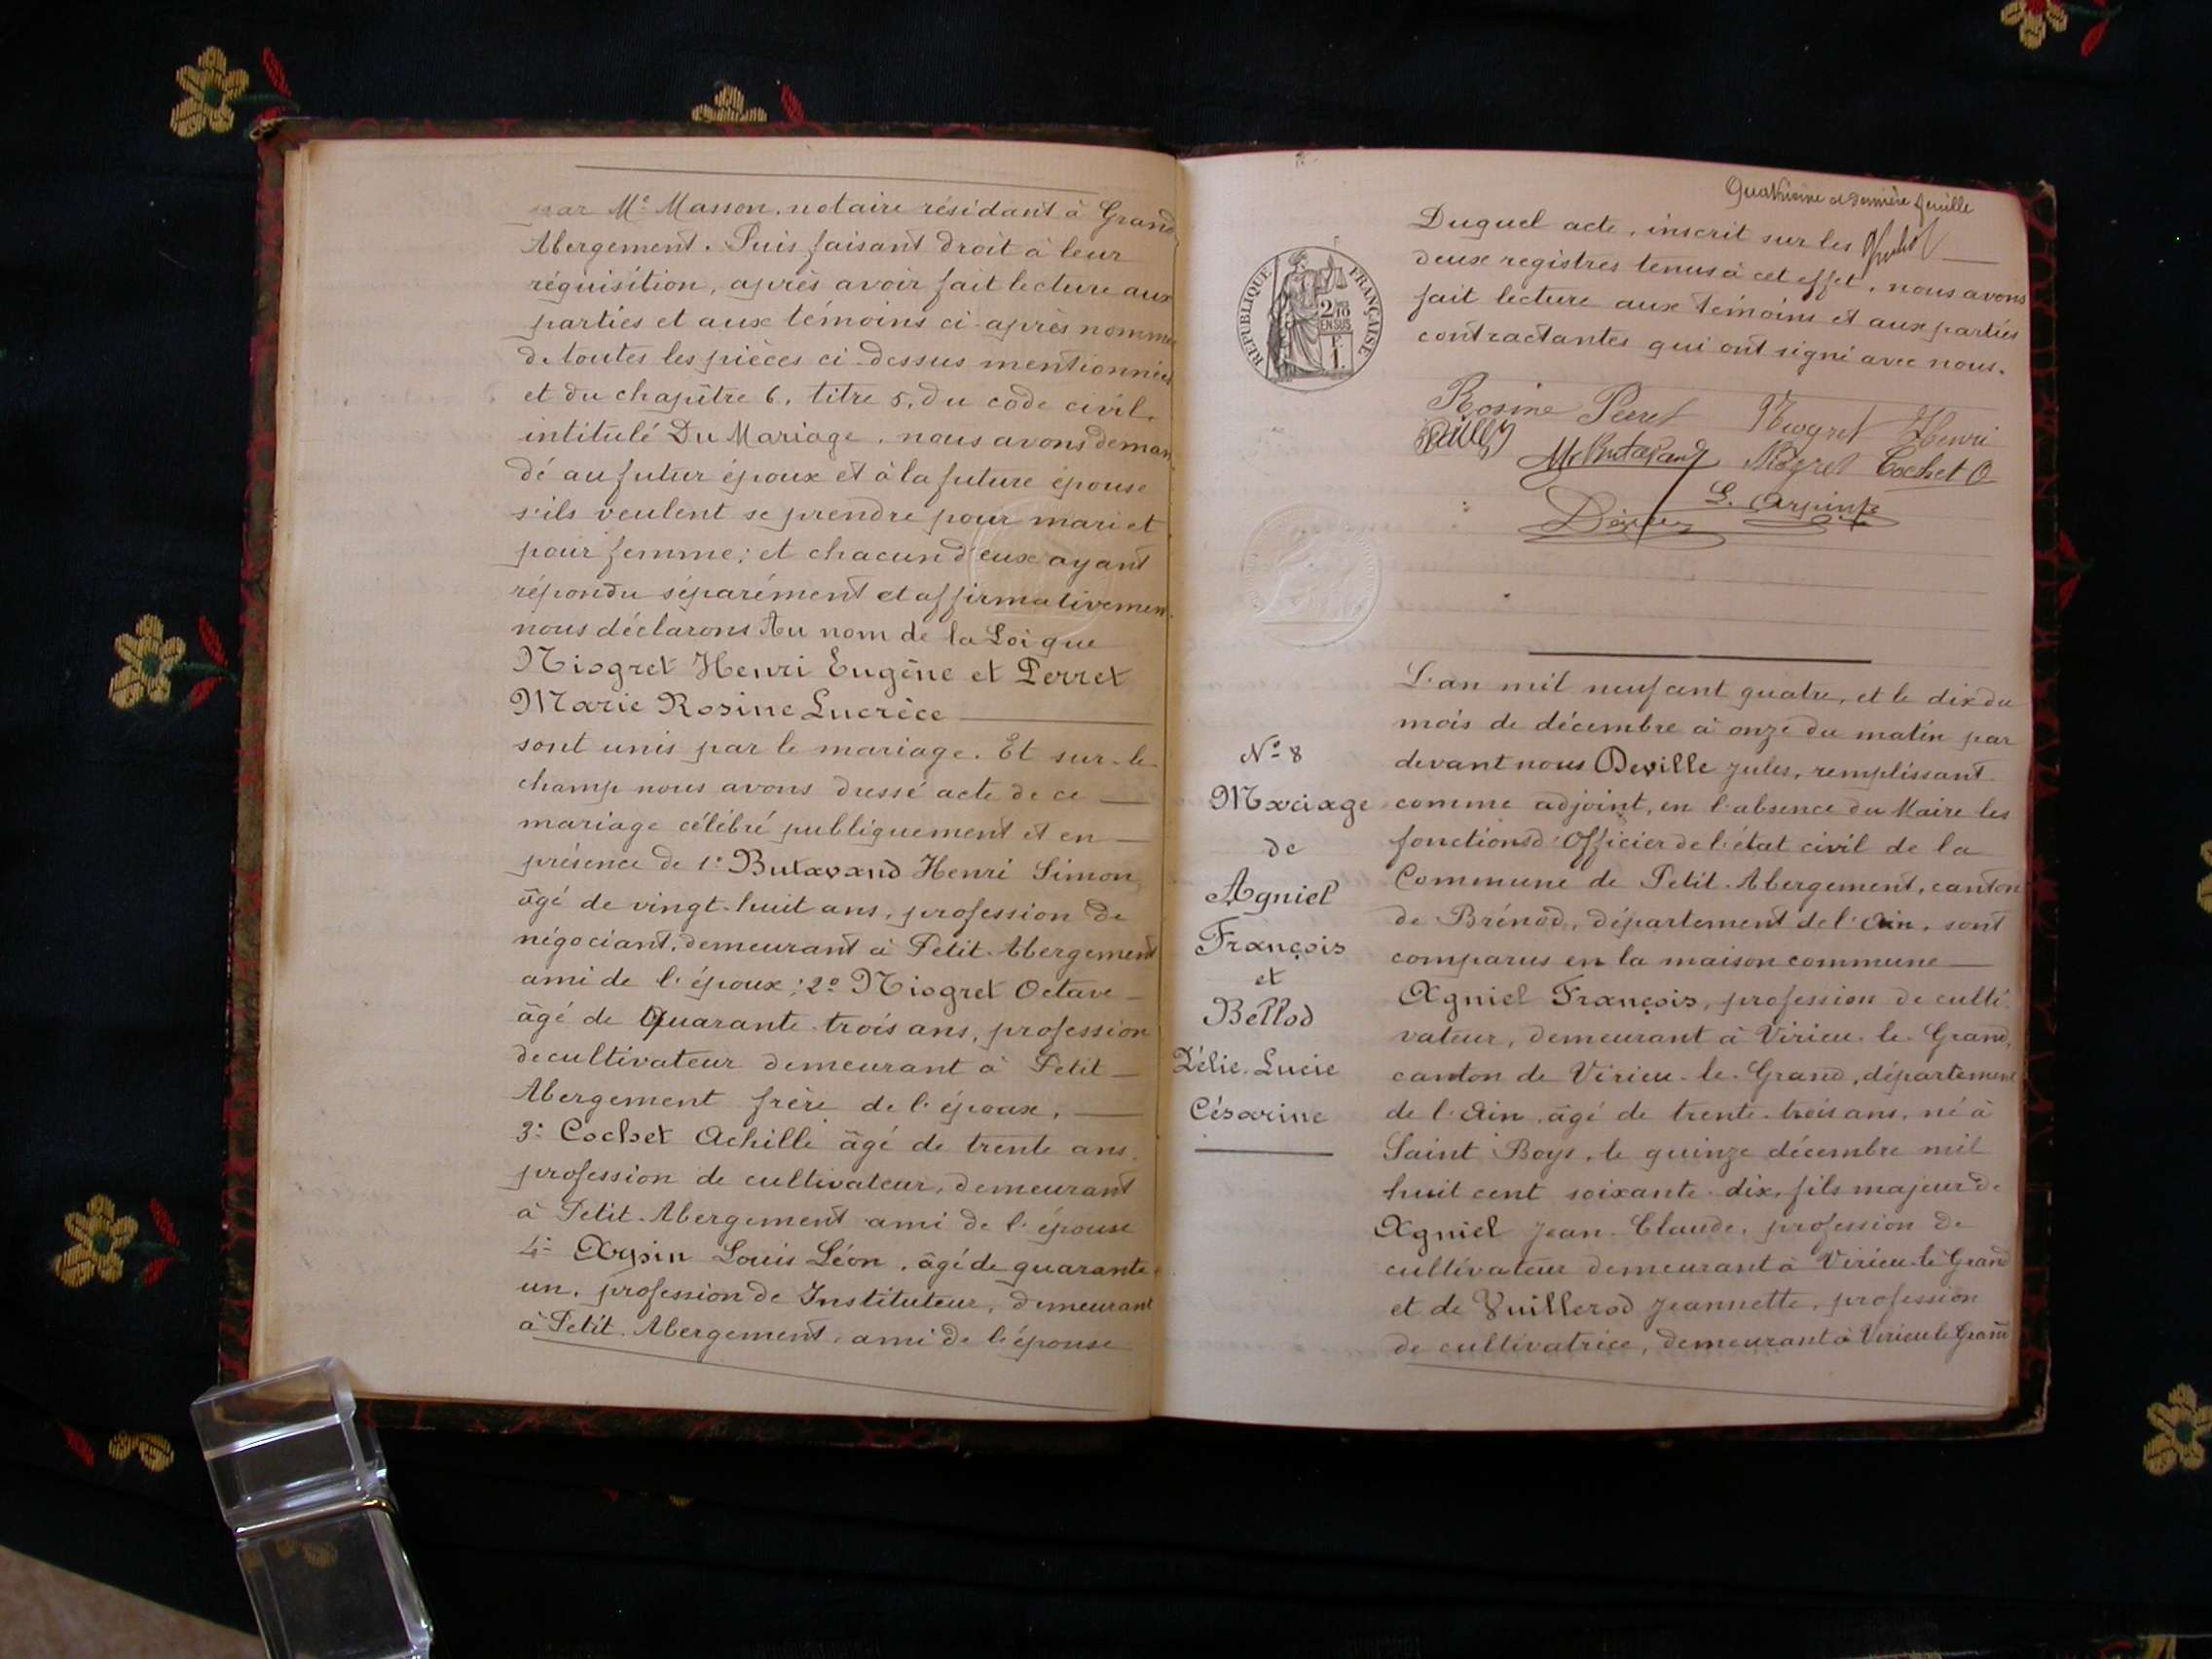 par Me Masson, notaire résidant à Grand
Abergement. Puis faisant droit à leur
réquisition, après avoir fait lecture aux
parties et aux témoins ci-après nommés
de toutes les pièces ci-dessus mentionnées
et du chapitre 6, titre 5, du code civil,
intitulé Du Mariage, nous avons deman
dé au futur époux et à la future épouse
s'ils veulent se prendre pour mari et
pour femme; et chacun d'eux ayant
répondu séparément et affirmativement
nous déclarons Au nom de la Loi que
Niogret Henri Eugène et Perret
Marie Rosine Lucrèce
sont unis par le mariage. Et sur-le-
champ nous avons dressé acte de ce
mariage célébré publiquement et en
présence de 1° Butavand Henri Simon
âgé de vingt-huit ans, profession de
négociant, demeurant à Petit-Abergement
ami de l'époux; 2° Niogret Octave
âgé de Quarante-trois ans, profession
de cultivateur demeurant à Petit
Abergement frère de l'époux,
3° Cochet Achille âgé de trente ans,
profession de cultivateur, demeurant
à Petit-Abergement ami de l'épouse
4° Arpin Louis Léon, âgé de quarante
un, profession de Instituteur, demeurant
à Petit-Abergement, ami de l'épouse
Quatrième et dernière feuille
Duquel acte, inscrit sur les
deux registres tenus à cet effet, nous avons
fait lecture aux témoins et aux parties
contractantes qui ont signé avec nous.
REPUBLIQUE FRANÇAISE
2/10
EN SUS
F.
1.
Rosine Perret Niogret Henri
Niogret Cochet
L. Arpin
L'an mil neuf cent quatre, et le dix du
mois de décembre à onze du matin par
devant nous Deville Jules, remplissant
comme adjoint, en l'absence du Maire les
fonctions d'Officier de l'état civil de la
Commune de Petit-Abergement, canton
de Brénod, département de l'Ain, sont
comparus en la maison commune
N° 8
Mariage
de
Agniel
François
et
Bellod
Délie-Lucie
Césarine
Agniel François, profession de culti
vateur, demeurant à Virieu-le-Grand,
canton de Virieu-le-Grand, département
de l'Ain, âgé de trente-trois ans, né à
Saint Boys, le quinze décembre mil
huit cent soixante-dix, fils majeur de
Agniel Jean-Claude, profession de
cultivateur demeurant à Virieu-le-Grand
et de Vuillerod Jeannette, profession
de cultivatrice, demeurant à Virieu le Grand